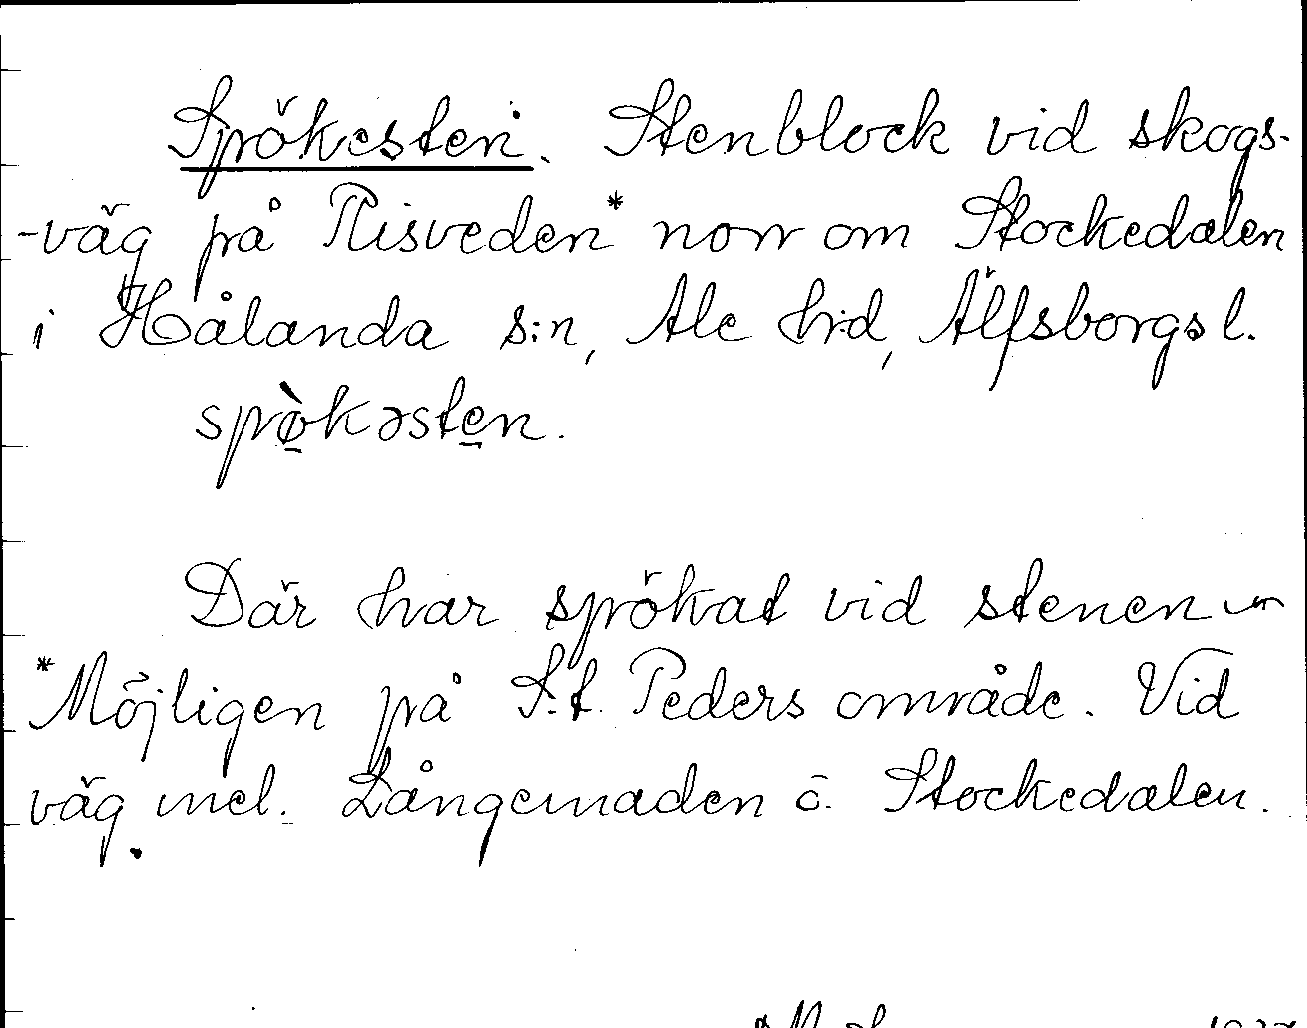 Spökesten. Stenblock vid skogs-
-väg på Risveden* norr om Stockedalen
i Hålanda s:n, Ale h:d, Älfsborgs l.
spø̀kəsten.
Där har spökat vid stenen
*Möjligen på S:t Peders område. Vid
väg mel. Långemaden o. Stockedalen.